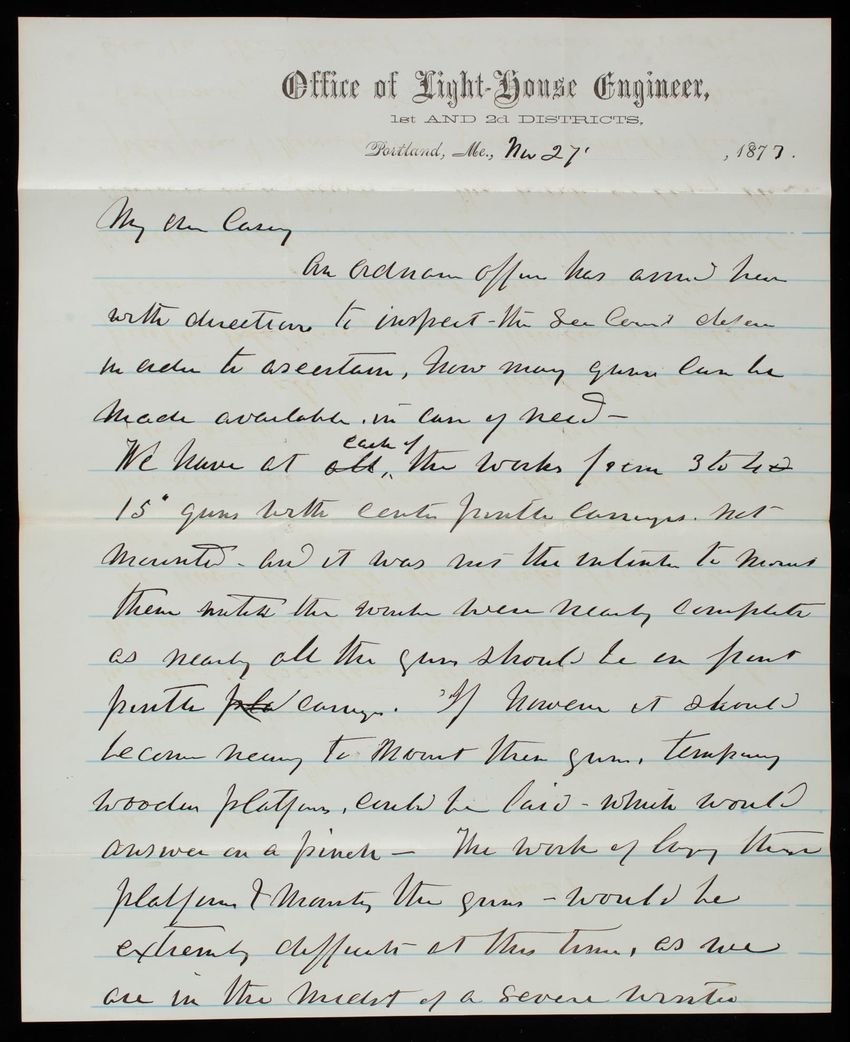 Office of Light-House Engineer,
1st AND 2d DISTRICTS,
Portland, Me., Nov 27 , 1873.
My dear Casey
An ordnance officer has arrived here
with directions to inspect the Sea Coast defence
in order to ascertain, how many guns can be
made available, in case of need -
We have at all each of the works from 3 to 4
15" guns with center pintle carriages not
mounted - and it was not the intention to mount
them until the works were nearly complete
as nearly all the guns should be on front
pintle pla carriages. If however it should
become necessary to mount these guns, temporary
wooden platforms, could be laid - which would
answer on a pinch - The work of laying these
platforms & mounting the guns - would be
extremely difficult at this time, as we
are in the midst of a severe winter